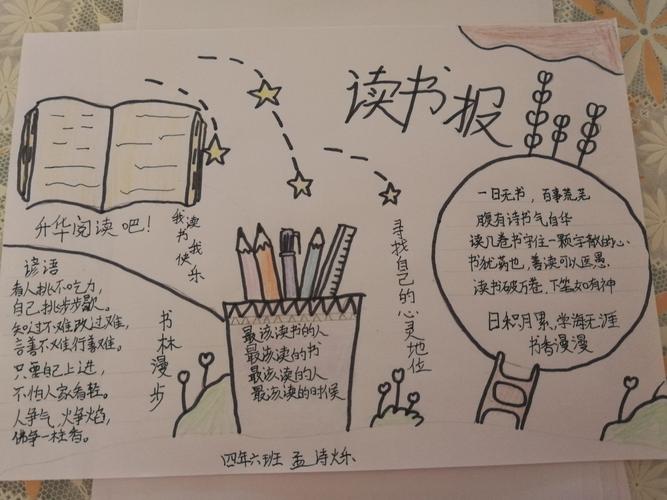 读书报
升华阅读吧!
我读书我快乐
谚语
有人挑不吃力,
自己挑步步歇。
知过不难改过难,
言善不难行善难。
只要自己上进,
不怕人家看轻。
人争气,火争焰,
佛争一柱香。
书林漫步
最该读书的人
最该读的书
最该读的人
最该读的时候
寻找自己的心灵地位
一日无书,百事荒芜
腹有诗书气自华
读几卷书守住一颗宁静的心
书犹药也,善读可以医愚
读书破万卷,下笔如有神
日积月累,学海无涯
书香漫漫
四年六班 孟诗烁